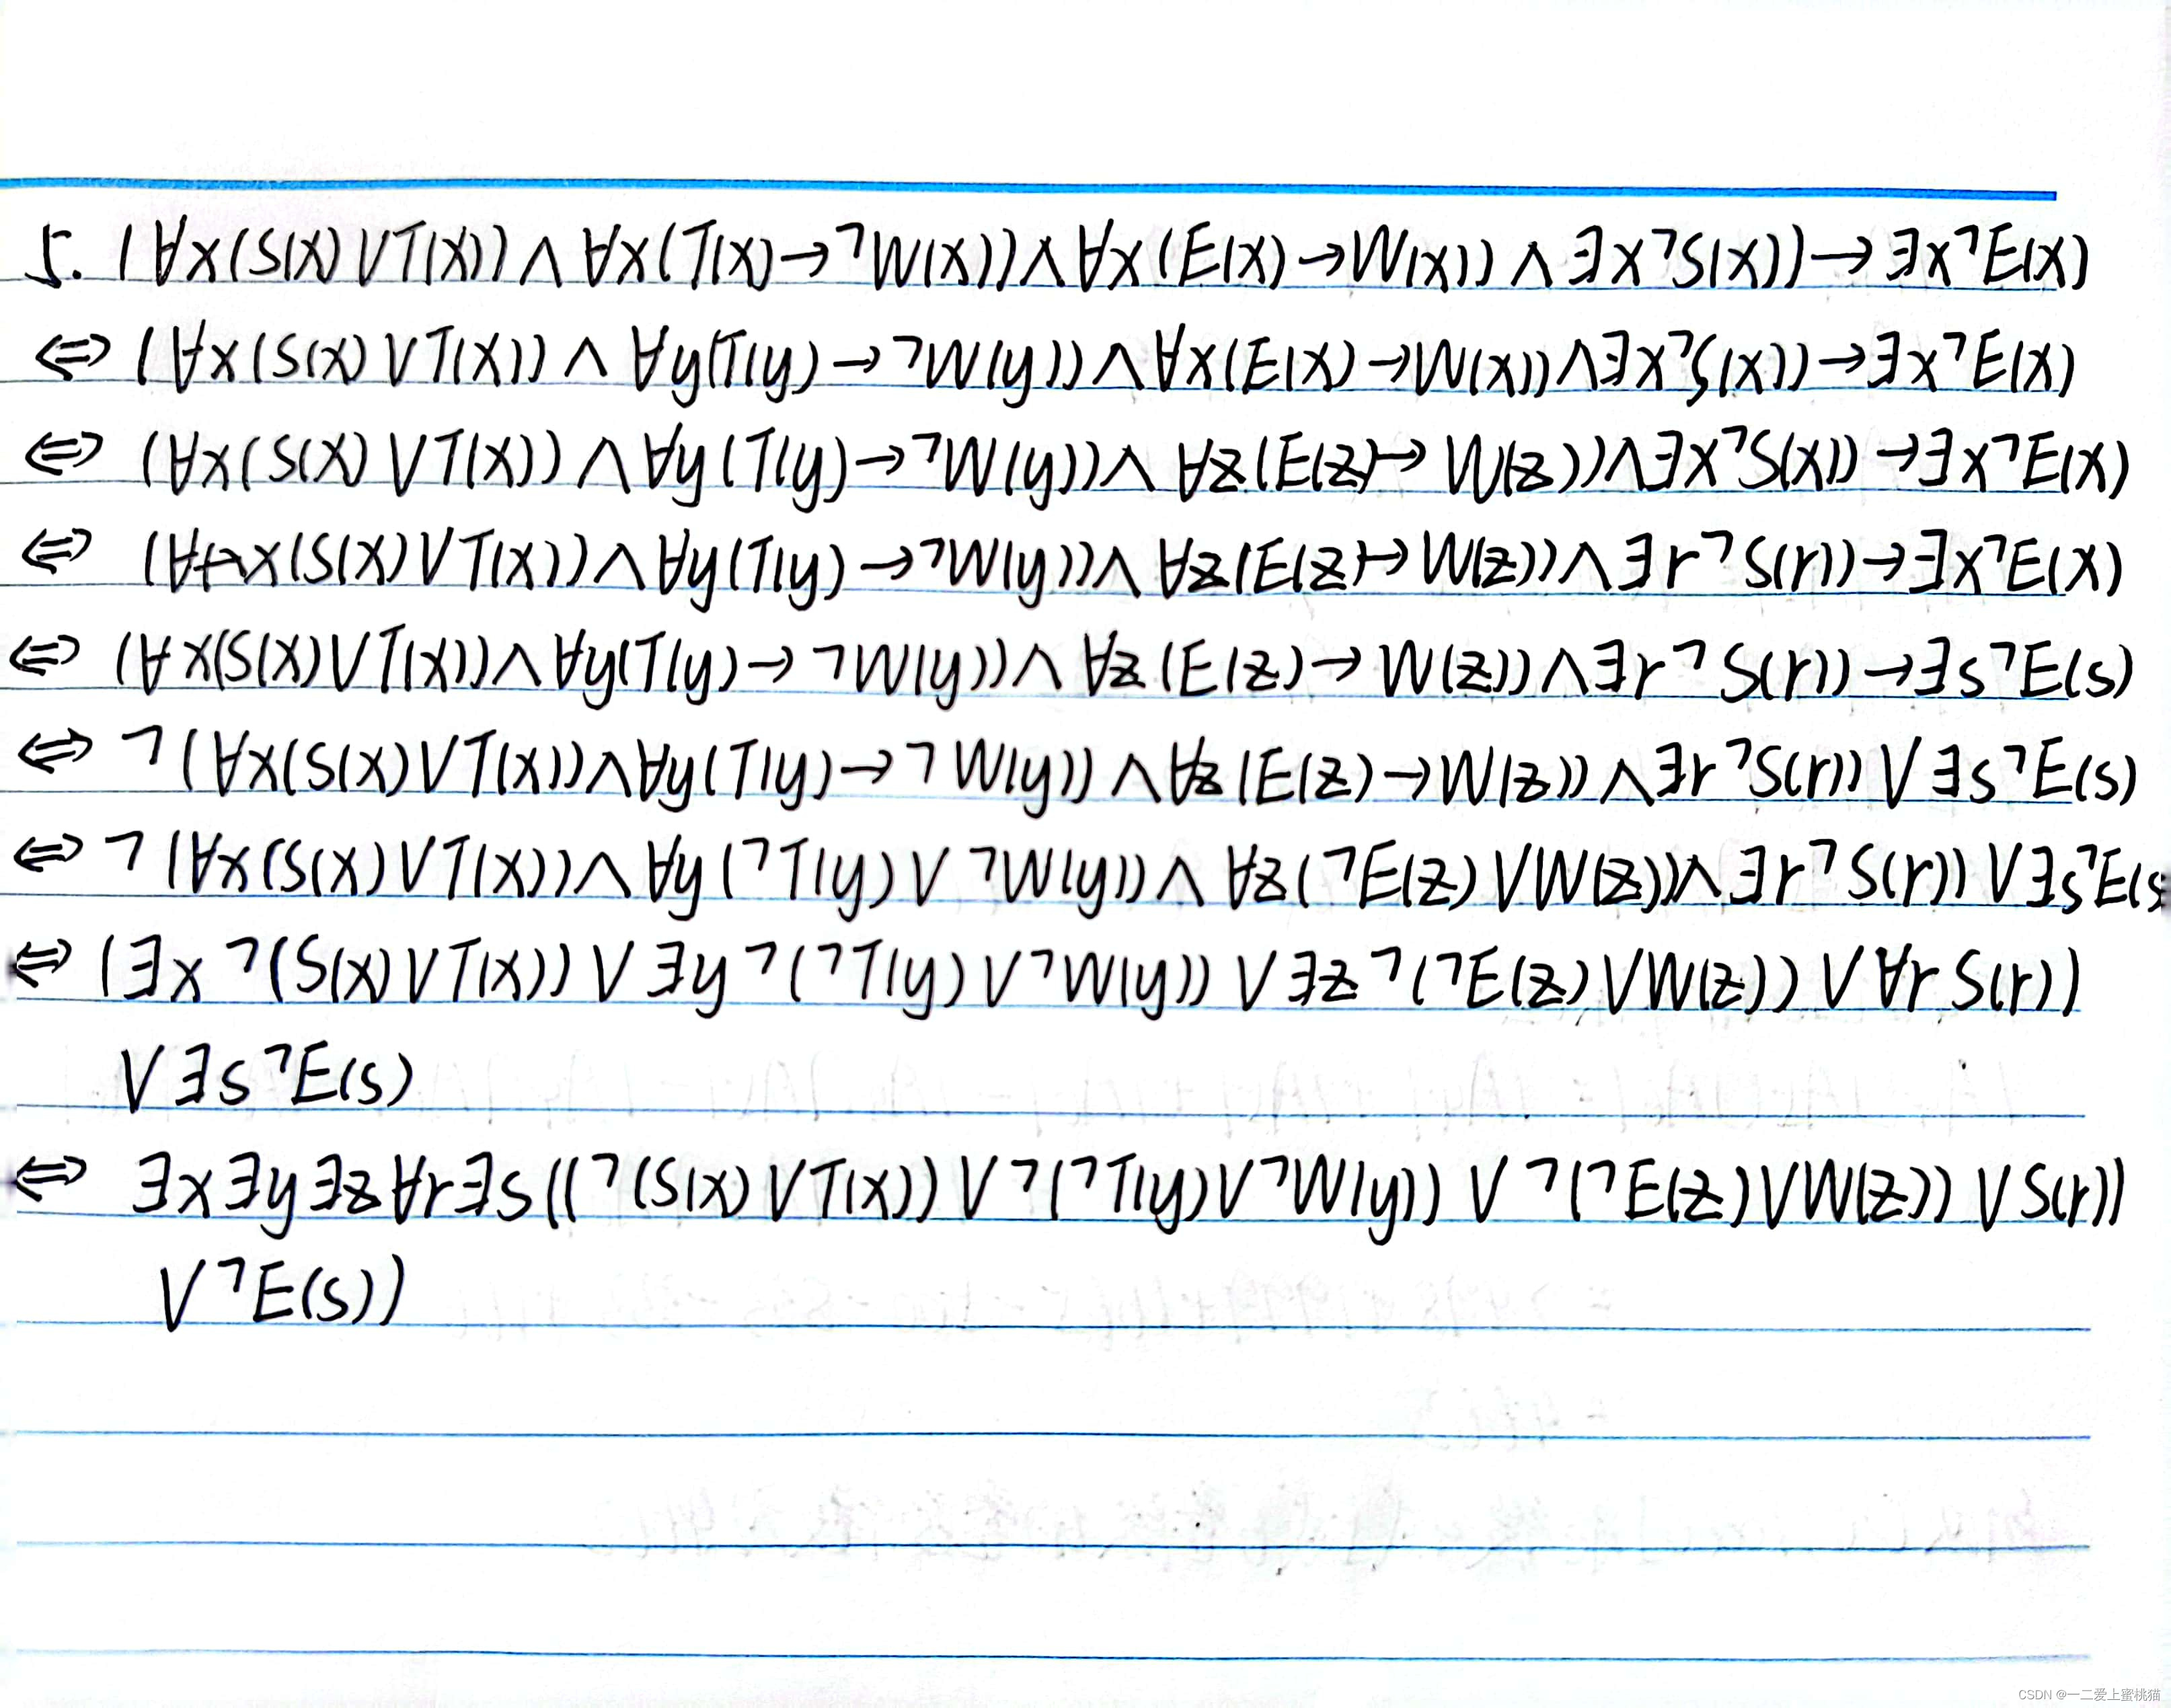 5. (∀x(S(x)∨T(x))∧∀x(T(x)→¬W(x))∧∀x(E(x)→W(x))∧∃x¬S(x))→∃x¬E(x)
⇔ (∀x(S(x)∨T(x))∧∀y(T(y)→¬W(y))∧∀x(E(x)→W(x))∧∃x¬S(x))→∃x¬E(x)
⇔ (∀x(S(x)∨T(x))∧∀y(T(y)→¬W(y))∧∀z(E(z)→W(z))∧∃x¬S(x))→∃x¬E(x)
⇔ (∀x(S(x)∨T(x))∧∀y(T(y)→¬W(y))∧∀z(E(z)→W(z))∧∃r¬S(r))→∃x¬E(x)
⇔ (∀x(S(x)∨T(x))∧∀y(T(y)→¬W(y))∧∀z(E(z)→W(z))∧∃r¬S(r))→∃s¬E(s)
⇔ ¬(∀x(S(x)∨T(x))∧∀y(T(y)→¬W(y))∧∀z(E(z)→W(z))∧∃r¬S(r))∨∃s¬E(s)
⇔ ¬(∀x(S(x)∨T(x))∧∀y(¬T(y)∨¬W(y))∧∀z(¬E(z)∨W(z))∧∃r¬S(r))∨∃s¬E(s
⇔ (∃x¬(S(x)∨T(x))∨∃y¬(¬T(y)∨¬W(y))∨∃z¬(¬E(z)∨W(z))∨∀rS(r))
∨∃s¬E(s)
⇔ ∃x∃y∃z∀r∃s((¬(S(x)∨T(x))∨¬(¬T(y)∨¬W(y))∨¬(¬E(z)∨W(z))∨S(r))
∨¬E(s))
CSDN @一二爱上蜜桃猫